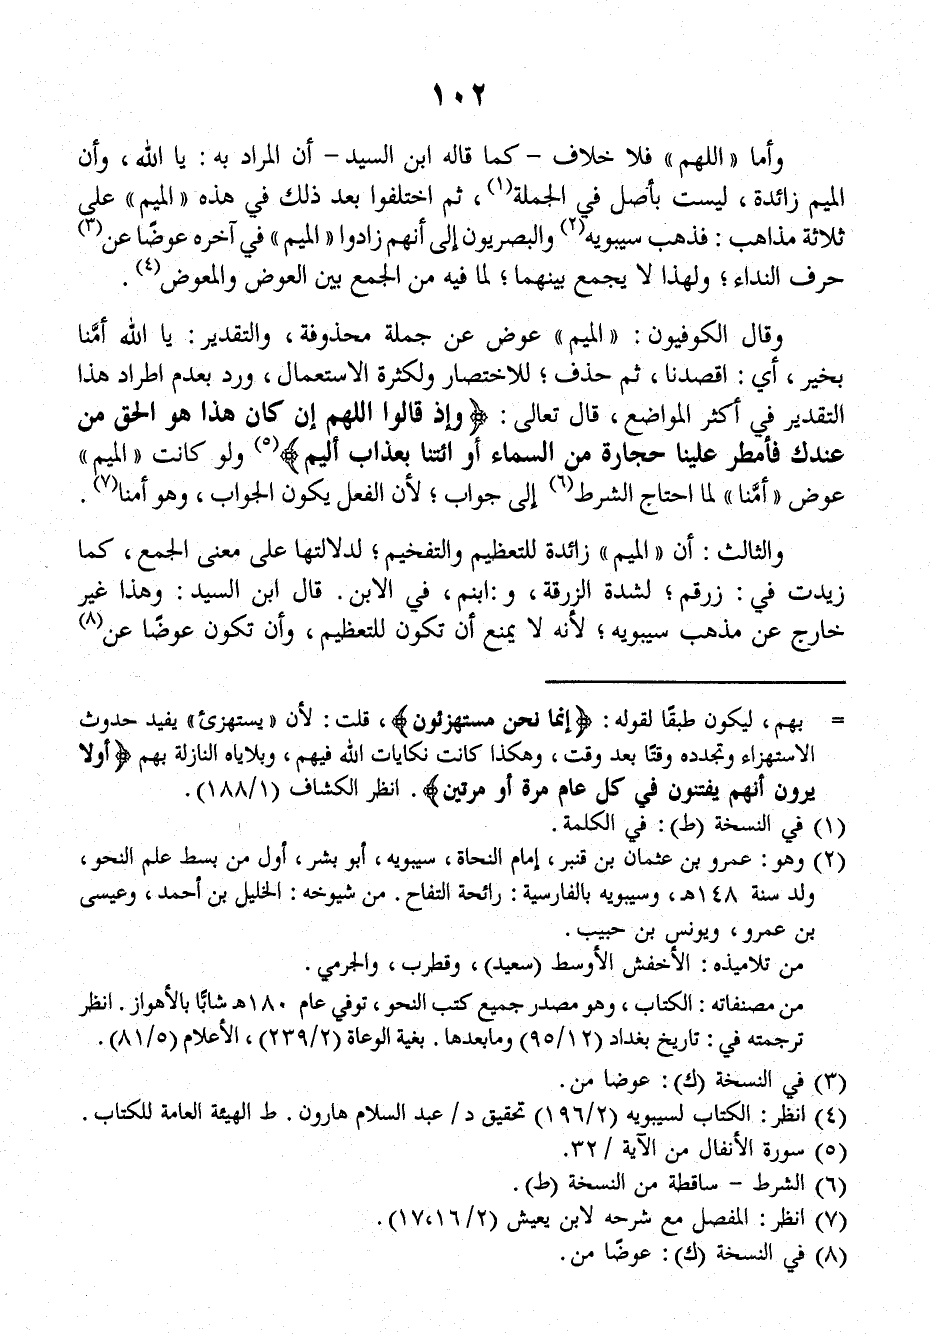 ١٠٢
وأما «اللهم» فلا خلاف - كما قاله ابن السيد - أن المراد به : يا الله ، وأن
الميم زائدة ، ليست بأصل في الجملة(١) ، ثم اختلفوا بعد ذلك في هذه «الميم» على
ثلاثة مذاهب : فذهب سيبويه(٢) والبصريون إلى أنهم زادوا «الميم» في آخره عوضًا عن(٣)
حرف النداء ؛ ولهذا لا يجمع بينهما ؛ لما فيه من الجمع بين العوض والمعوض(٤) .
وقال الكوفيون : «الميم» عوض عن جملة محذوفة ، والتقدير : يا الله أمَّنا
بخير ، أي : اقصدنا ، ثم حذف ؛ للاختصار ولكثرة الاستعمال ، ورد بعدم اطراد هذا
التقدير في أكثر المواضع ، قال تعالى : ﴿وإذ قالوا اللهم إن كان هذا هو الحق من
عندك فأمطر علينا حجارة من السماء أو ائتنا بعذاب أليم﴾(٥) ولو كانت «الميم»
عوض «أمَّنا» لما احتاج الشرط(٦) إلى جواب ؛ لأن الفعل يكون الجواب ، وهو أمنا(٧) .
والثالث : أن «الميم» زائدة للتعظيم والتفخيم ؛ لدلالتها على معنى الجمع ، كما
زيدت في : زرقم ؛ لشدة الزرقة ، و :ابنم ، في الابن . قال ابن السيد : وهذا غير
خارج عن مذهب سيبويه ؛ لأنه لا يمنع أن تكون للتعظيم ، وأن تكون عوضًا عن(٨)
= بهم ، ليكون طبقًا لقوله : ﴿إنما نحن مستهزئون﴾ ، قلت : لأن «يستهزئ» يفيد حدوث
الاستهزاء وتجدده وقتًا بعد وقت ، وهكذا كانت نكايات الله فيهم ، وبلاياه النازلة بهم ﴿أولا
يرون أنهم يفتنون في كل عام مرة أو مرتين﴾ . انظر الكشاف (١٨٨/١) .
(١) في النسخة (ط) : في الكلمة .
(٢) وهو : عمرو بن عثمان بن قنبر ، إمام النحاة ، سيبويه ، أبو بشر ، أول من بسط علم النحو ،
ولد سنة ١٤٨هـ ، وسيبويه بالفارسية : رائحة التفاح . من شيوخه : الخليل بن أحمد ، وعيسى
بن عمرو ، ويونس بن حبيب .
من تلاميذه : الأخفش الأوسط (سعيد) ، وقطرب ، والجرمي .
من مصنفاته : الكتاب ، وهو مصدر جميع كتب النحو ، توفي عام ١٨٠هـ شابًّا بالأهواز . انظر
ترجمته في : تاريخ بغداد (٩٥/١٢) ومابعدها . بغية الوعاة (٢٣٩/٢) ، الأعلام (٨١/٥) .
(٣) في النسخة (ك) : عوضا من .
(٤) انظر : الكتاب لسيبويه (١٩٦/٢) تحقيق د/ عبد السلام هارون . ط الهيئة العامة للكتاب .
(٥) سورة الأنفال من الآية /٣٢.
(٦) الشرط - ساقطة من النسخة (ط) .
(٧) انظر : المفصل مع شرحه لابن يعيش (١٧،١٦/٢) .
(٨) في النسخة (ك) : عوضًا من .